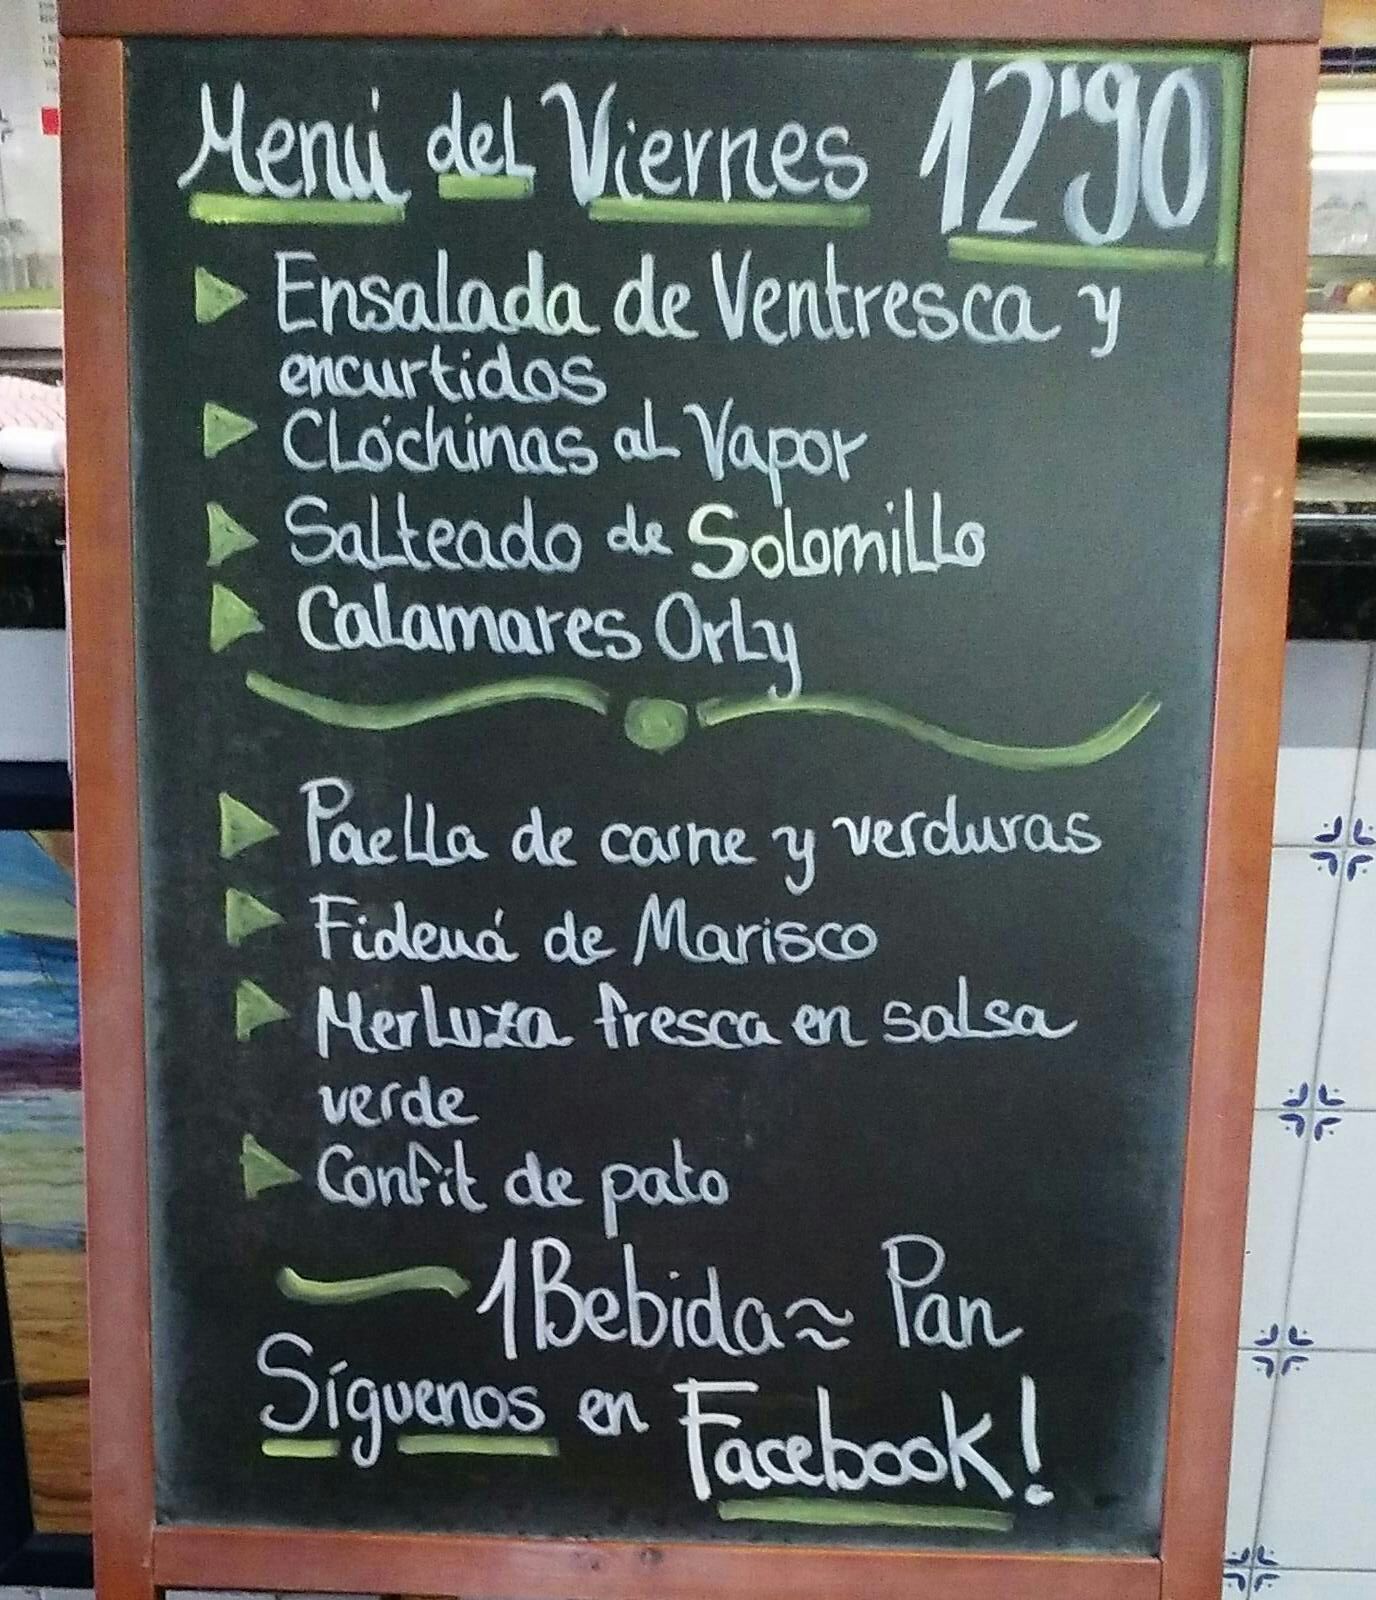 Menú del Viernes 12'90
Ensalada de Ventresca y
encurtidos
Clóchinas al Vapor
Salteado de Solomillo
Calamares Orly
Paella de carne y verduras
Fideuá de Marisco
Merluza fresca en salsa
verde
Confit de pato
1 Bebida ~ Pan
Síguenos en Facebook!